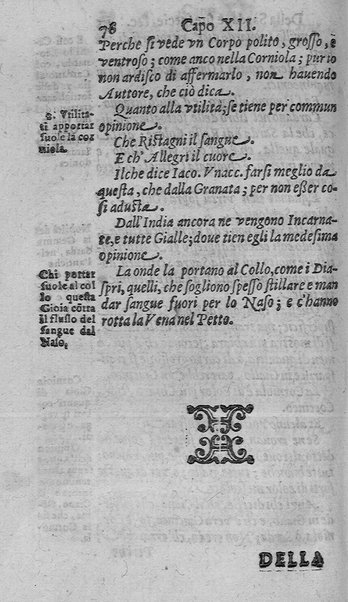 78 Capo XII.
Perche si vede vn Corpo polito, grosso, e
ventroso; come anco nella Corniola; pur io
non ardisco di affermarlo, non hauendo
Auttore, che ciò dica.
Quanto alla vtilità; se tiene per commun
opinione.
8. Vtilità
ti apportar
suole la cor
niola.
Che Ristagni il sangue.
E ch' Allegri il cuore.
Ilche dice Iaco. Vnacc. farsi meglio da
questa, che dalla Granata; per non esser co
sì adusta.
Dall'India ancora ne vengono Incarna-
te, e tutte Gialle; doue tien egli la medesima
opinione.
La onde la portano al Collo, come i Dia-
spri, quelli, che sogliono spesso stillare e man
dar sangue fuori per lo Naso; e c'hanno
rotta la Vena nel Petto.
Chi portar
suole al col
lo questa
Gioia cōtra
il flusso del
sangue dal
Naso.
DELLA